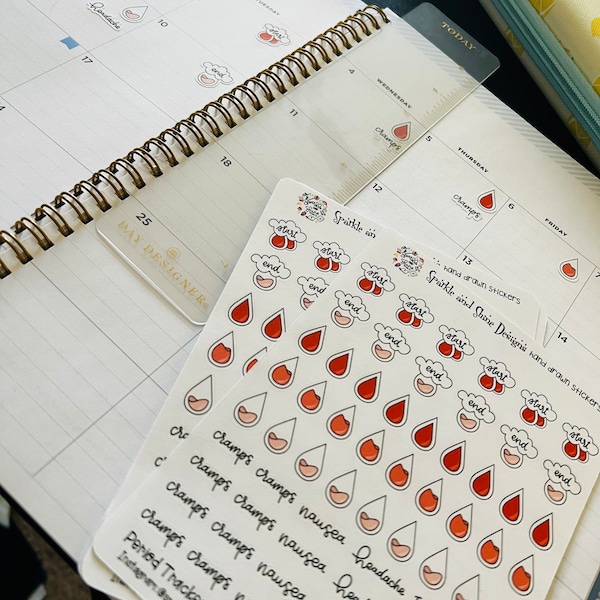 headache
10
TUESDAY
start
17
end
TODAY
4
WEDNESDAY
cramps
11
18
25
DAY DESIGNER
5
THURSDAY
cramps
12
6
FRIDAY
13
7
14
Sparkle an
start start
end end
Sparkle and Shine Designs hand drawn stickers
hand drawn stickers
start start start start start start
end end end end end end
cramps cramps nausea headache
cramps cramps nausea
cramps cramps nausea
cramps cramps nausea
Period Track
Instagram